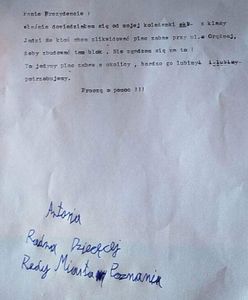 Panie Prezydencie !
właśnie dowiedziałam się od mojej koleżanki z klasy
Jadzi że ktoś chce zlikwidować plac zabaw przy ul. Grażnej,
żeby zbudować tam blok. Nie zgadzam się na to !
To jedyny plac zabaw w okolicy, bardzo go lubimy i lubimy
potrzebujemy.
Proszę o pomoc !!!
Antonia
Radna Dziecięcej
Rady Miasta Poznania